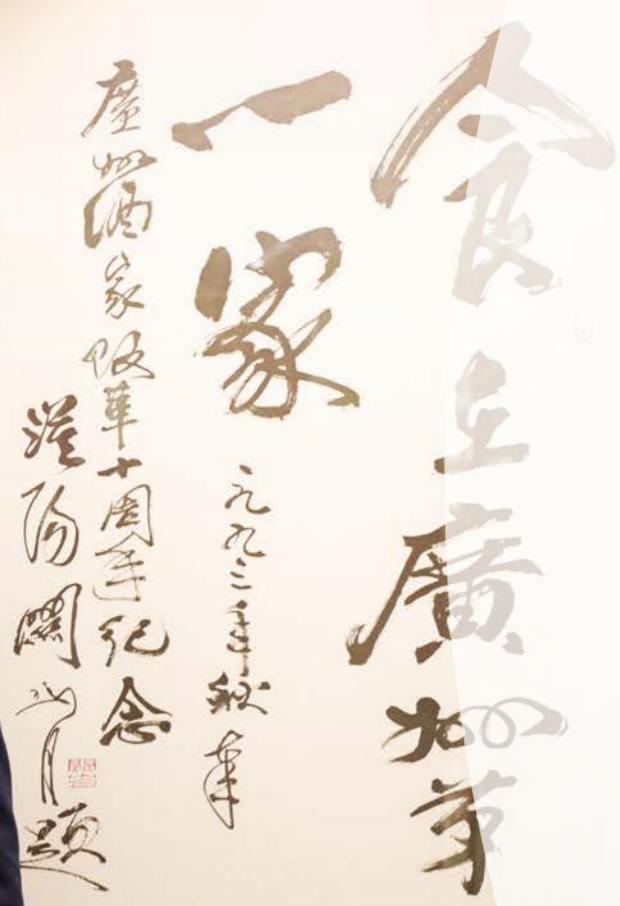 食在廣州第
一家
一九九三年秋
廣州酒家改革十周年紀念
漠陽關山月題